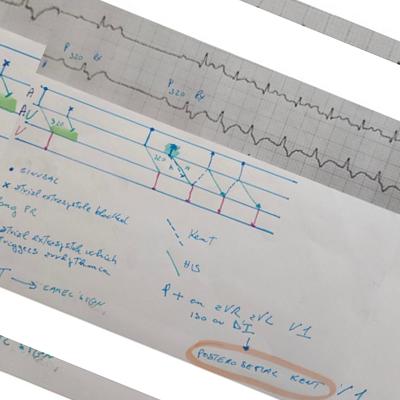 P
320 Rs
P
320 Rs
A
AV
V
320
320
• SINUSAL
x atrial extrasystole blocked
long PR
atrial extrasystole which
triggers arrhythmia
Kent
HIS
P + on aVR aVL V1
ISO on DI
POSTEROSEPTAL KENT